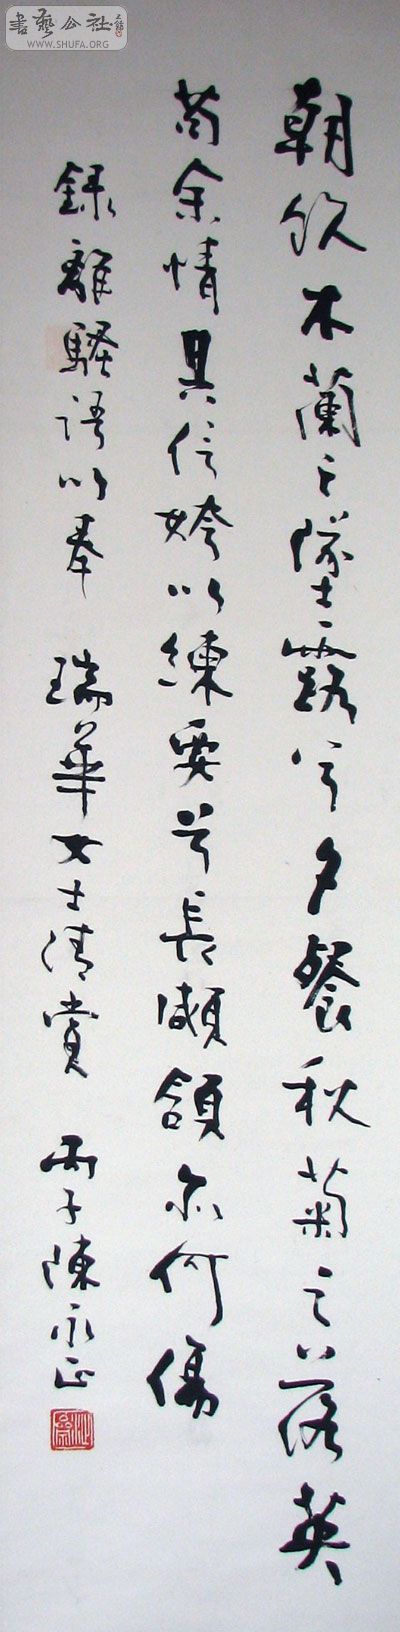 書藝公社
WWW.SHUFA.ORG
朝飲木蘭之墜露兮夕餐秋菊之落英
苟余情其信姱以練要兮長顑頷亦何傷
錄離騷語以奉 瑞華女士清賞 丙子陳永正